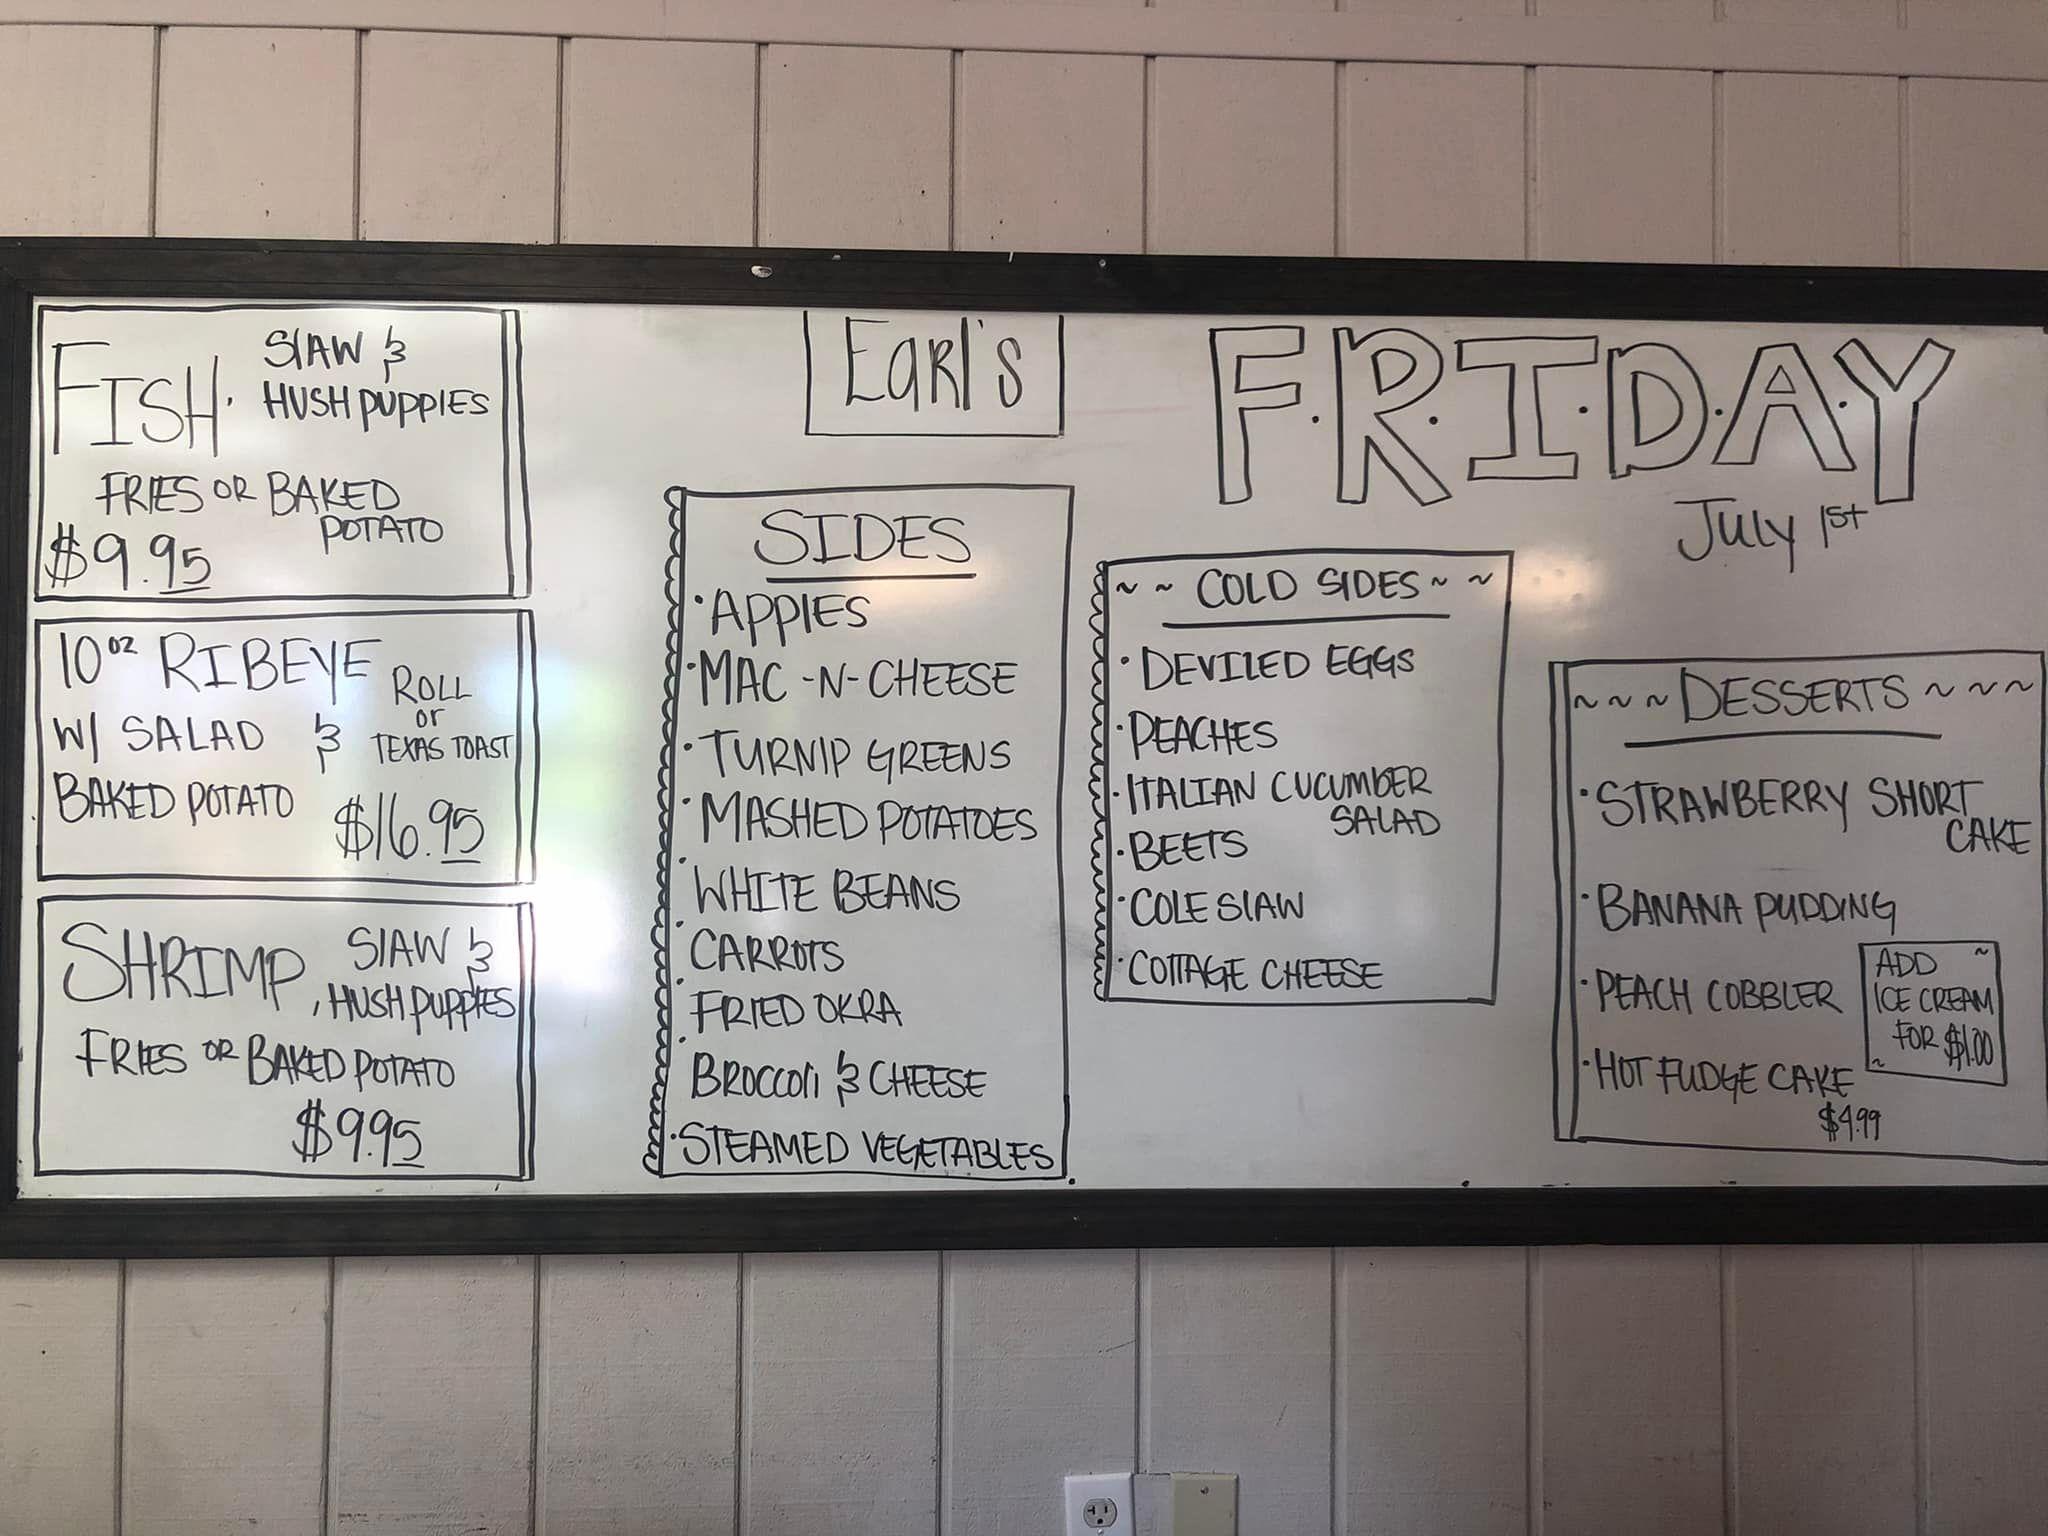 FISH, SLAW &
HUSHPUPPIES
FRIES OR BAKED
POTATO
$9.95
10 oz RIBEYE
W/ SALAD & ROLL
or
TEXAS TOAST
BAKED POTATO
$16.95
SHRIMP, SLAW &
HUSHPUPPIES
FRIES OR BAKED POTATO
$9.95
EARL'S
SIDES
• APPLES
• MAC-N-CHEESE
• TURNIP GREENS
• MASHED POTATOES
• WHITE BEANS
• CARROTS
• FRIED OKRA
• BROCCOLI & CHEESE
• STEAMED VEGETABLES
F.R.I.D.A.Y
July 1st
~ ~ COLD SIDES ~ ~
• DEVILED EGGS
• PEACHES
• ITALIAN CUCUMBER
SALAD
• BEETS
• COLE SLAW
• COTTAGE CHEESE
~ ~ ~ DESSERTS ~ ~ ~
• STRAWBERRY SHORT
CAKE
• BANANA PUDDING
• PEACH COBBLER
• HOT FUDGE CAKE
$4.99
ADD ~
ICE CREAM
FOR $1.00
~